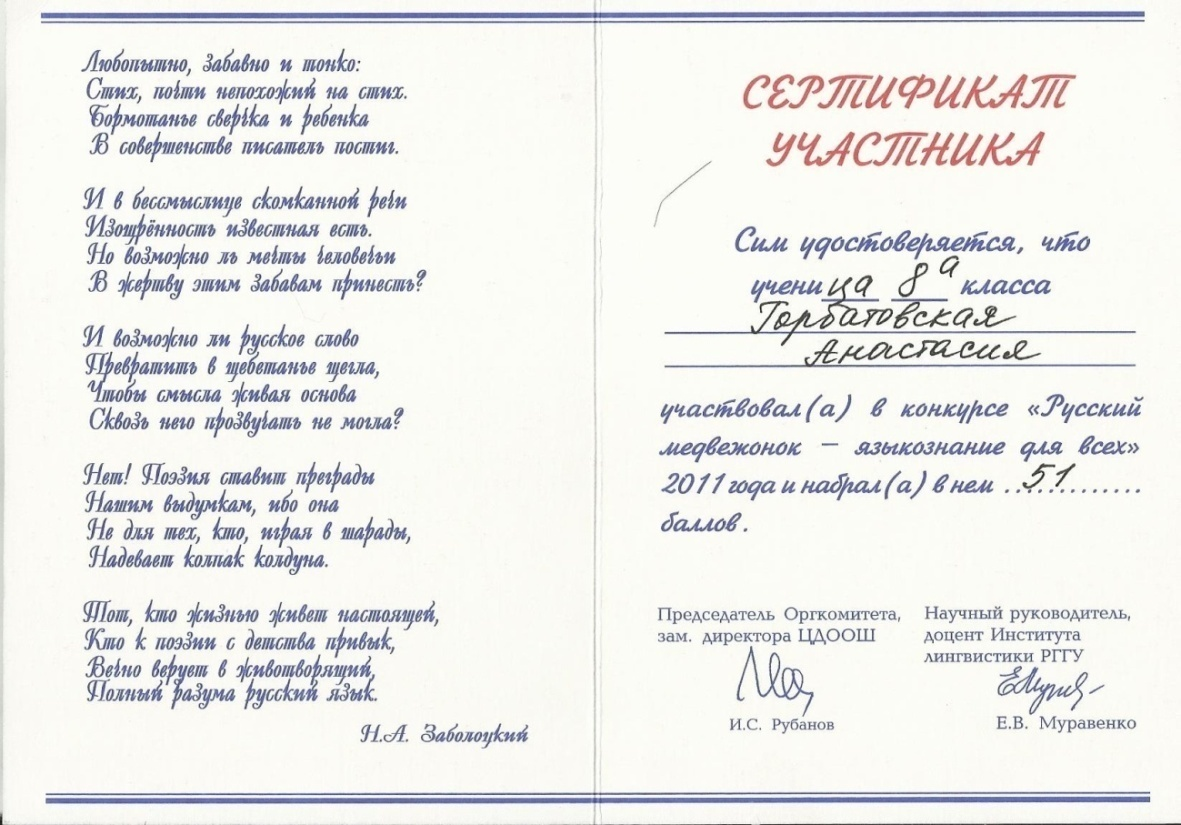 Любопытно, забавно и тонко:
Стих, почти непохожий на стих.
Бормотанье сверчка и ребенка
В совершенстве писатель постиг.
И в бессмыслице скомканной речи
Изощрённость известная есть.
Но возможно ль мечты человечьи
В жертву этим забавам принесть?
И возможно ли русское слово
Превратить в щебетанье щегла,
Чтобы смысла живая основа
Сквозь него прозвучать не могла?
Нет! Поэзия ставит преграды
Нашим выдумкам, ибо она
Не для тех, кто, играя в шарады,
Надевает колпак колдуна.
Тот, кто жизнью живет настоящей,
Кто к поэзии с детства привык,
Вечно верует в животворящий,
Полный разума русский язык.
Н.А. Заболоцкий
СЕРТИФИКАТ
УЧАСТНИКА
Сим удостоверяется, что
ученица 8а класса
Горбатовская
Анастасия
участвовал(а) в конкурсе «Русский
медвежонок – языкознание для всех»
2011 года и набрал(а) в нем ...51..........
баллов.
Председатель Оргкомитета,
зам. директора ЦДООШ
И.С. Рубанов
Научный руководитель,
доцент Института
лингвистики РГГУ
Е.В. Муравенко